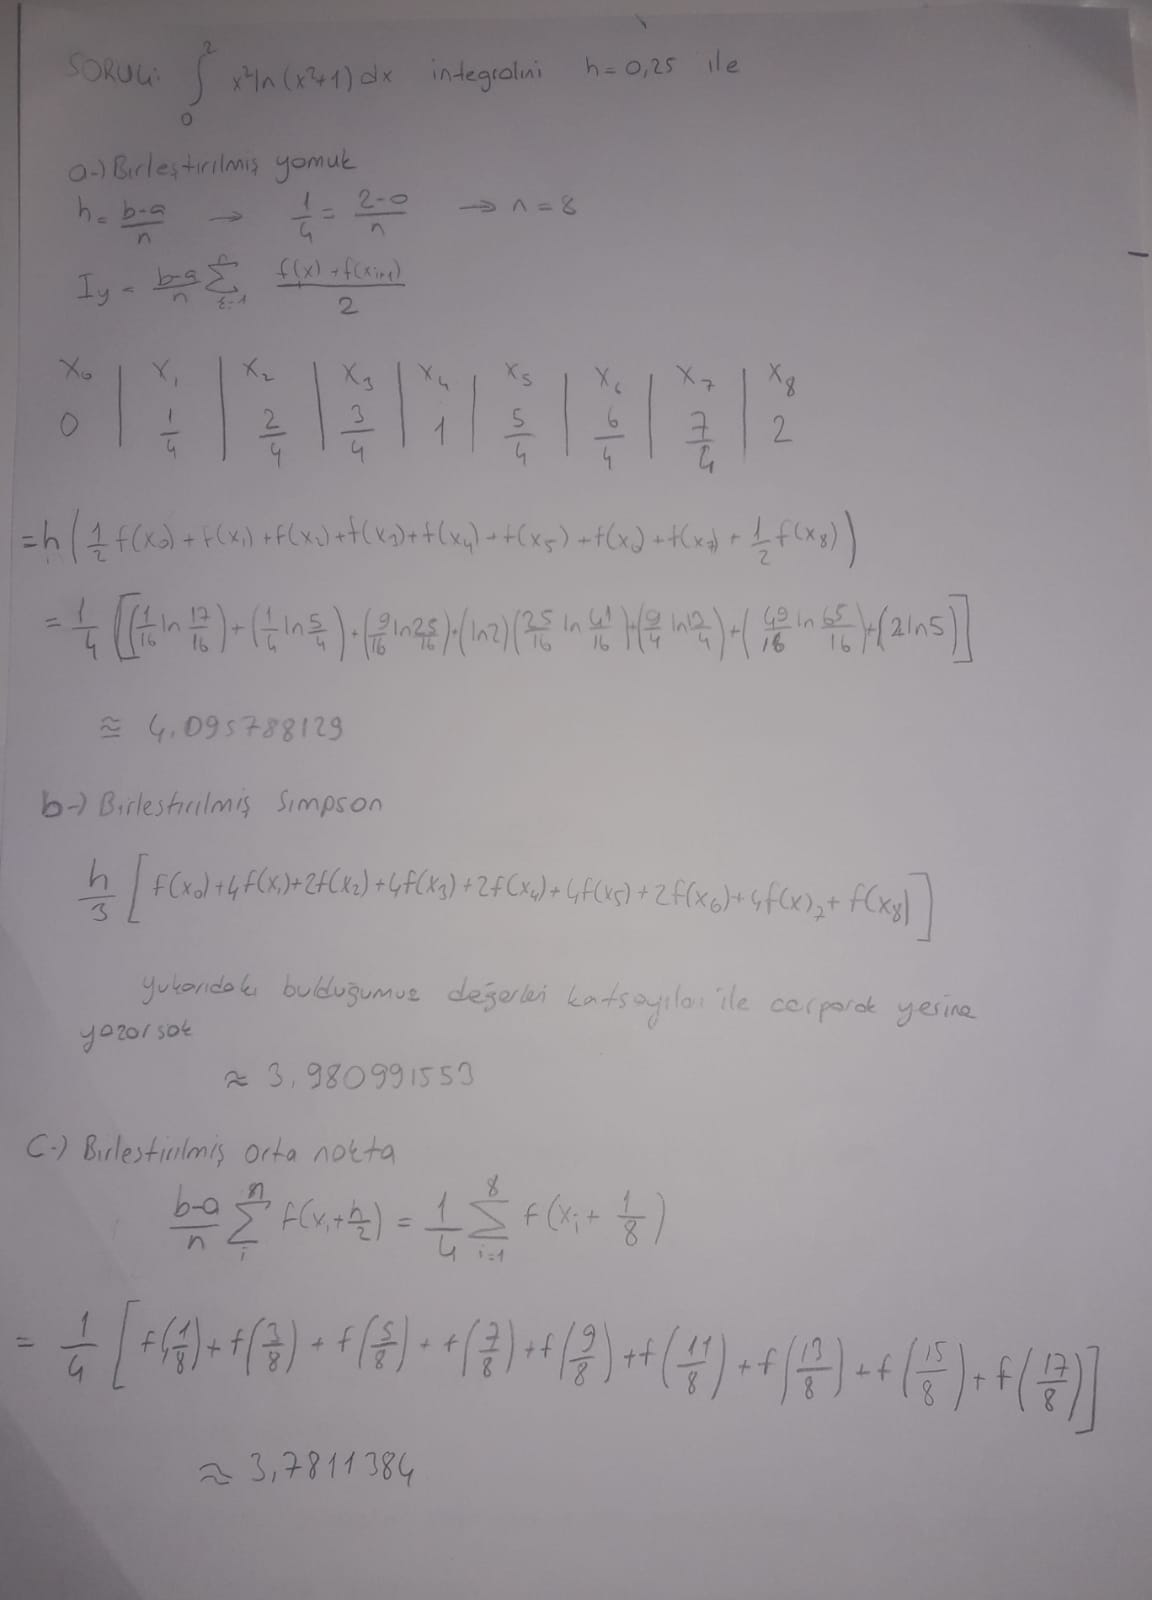 SORU4: ∫₀² x²ln(x²+1)dx integralini h=0,25 ile
a-) Birleştirilmiş yamuk
h= b-a/n → 1/4 = 2-0/n → n=8
Iy = b-a/n Σ i=1 n f(x)+f(xi+1)/2
x0 | x1 | x2 | x3 | x4 | x5 | x6 | x7 | x8
0 | 1/4 | 2/4 | 3/4 | 1 | 5/4 | 6/4 | 7/4 | 2
=h(1/2 f(x0)+f(x1)+f(x2)+f(x3)+f(x4)+f(x5)+f(x6)+f(x7)+1/2 f(x8))
= 1/4 [(1/16 ln 17/16)+(1/4 ln 5/4)+(9/16 ln 25/16)+(ln2)(25/16 ln 41/16)+(9/4 ln 12/4)+(49/16 ln 65/16)+(2ln5)]
≅ 4,095788129
b-) Birleştirilmiş Simpson
h/3 [f(x0)+4f(x1)+2f(x2)+4f(x3)+2f(x4)+4f(x5)+2f(x6)+4f(x)7+f(x8)]
yukarıdaki bulduğumuz değerleri katsayıları ile çarparak yerine
yazarsak
≈ 3,980991553
C-) Birleştirilmiş orta nokta
b-a/n Σ i n f(xi+h/2) = 1/4 Σ i=1 8 f(xi+ 1/8)
= 1/4 [f(1/8)+f(3/8)+f(5/8)+f(7/8)++f(9/8)++f(11/8)+f(13/8)+f(15/8)+f(17/8)]
≈ 3,7811384